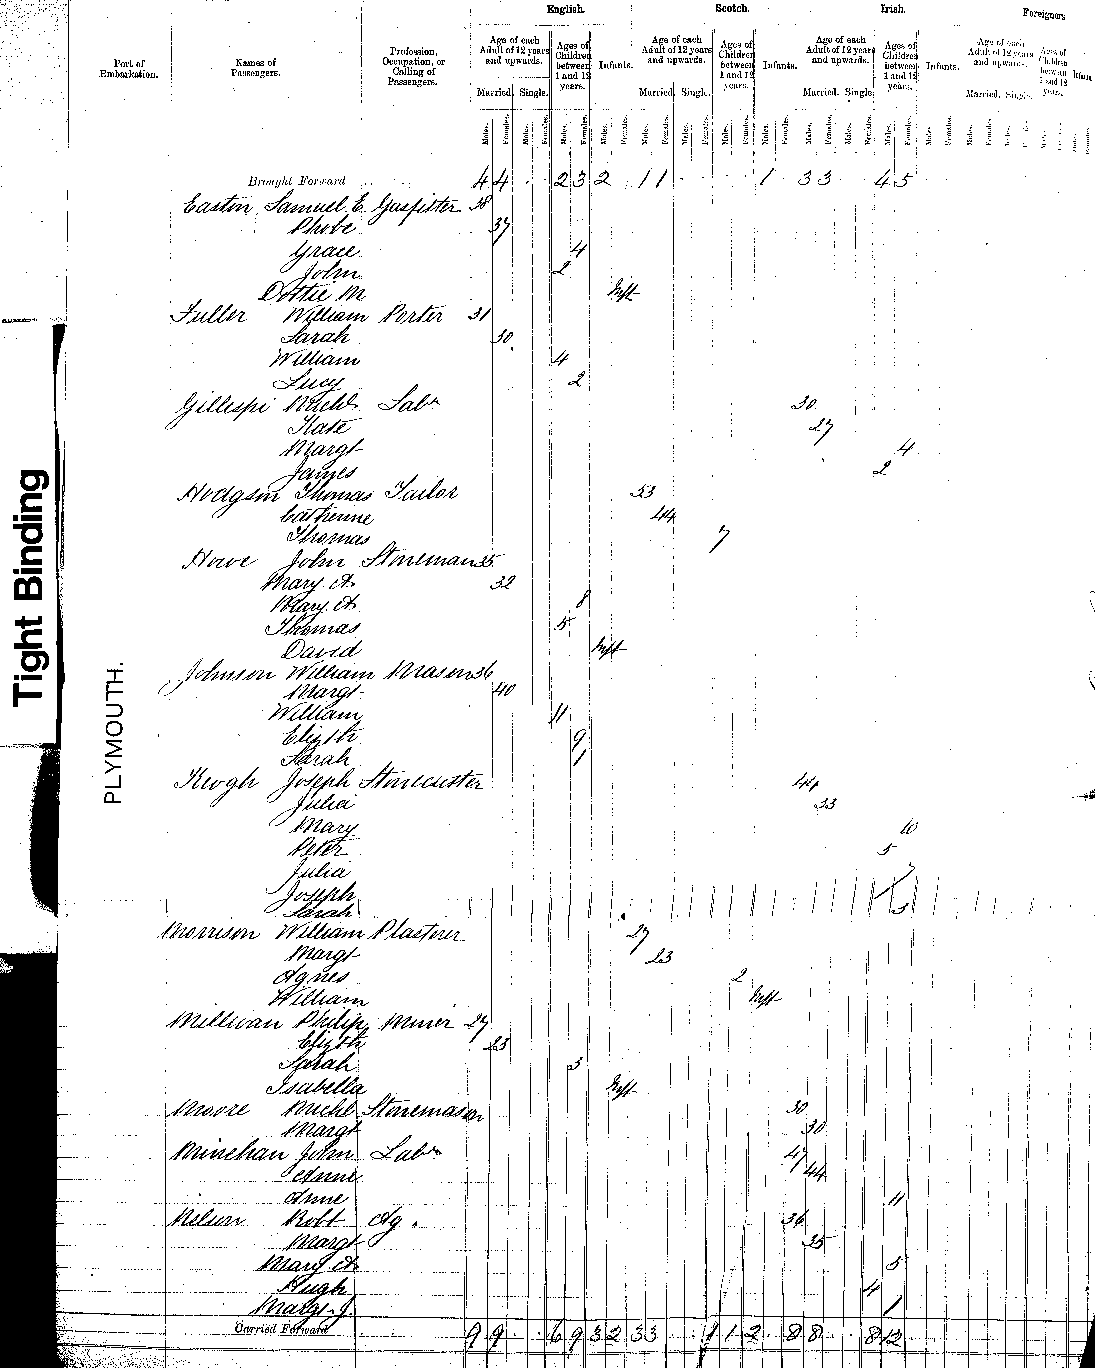 English. Scotch. Irish. Foreigners
Port of Embarkation. Names of Passengers. Profession, Occupation, or Calling of Passengers. Age of each Adult of 12 years and upwards. Ages of Children between 1 and 12 years. Infants. Age of each Adult of 12 years and upwards. Ages of Children between 1 and 12 years. Infants. Age of each Adult of 12 years and upwards. Ages of Children between 1 and 12 years. Infants. Age of each Adult of 12 years and upwards. Ages of Children between 1 and 12 years. Infants
Married. Single. Married. Single. Married. Single. Married. Single.
Males. Females. Males. Females. Males. Females. Males. Females. Males. Females. Males. Females. Males. Females. Males. Females. Males. Females. Males. Females. Males. Females. Males. Females.
Brought Forward 4 4 2 3 2 1 1 1 3 3 4 5
Easton Samuel E Gasfitter 38
Phobe 37
Grace 4
John 2
Dottie M Inft
Fuller William Porter 31
Sarah 30
William 4
Lucy 2
Gillespi Michl Labr 30
Kate 27
Margt 4
James 2
Hodgson Thomas Tailor 53
Catherine 44
Thomas 7
Howe John Stoneman 35
Mary A 32
Mary A 8
Thomas 5
David Inft
Johnson William Mason 36
Margt 40
William 11
Elizth 9
Sarah 1
Keogh Joseph Stonecutter 44
Julia 33
Mary 10
Peter 5
Julia
Joseph
Sarah
Morrison William Plasterer 27
Margt 23
Agnes 2
William Inft
Milliwan Philip Miner 27
Elizth 23
Sarah 3
Isabella Inft
Moore Michl Stonemason 30
Margt 30
Minehan John Labr 47
Anne 44
Anne 11
Nelson Robt Ag. 36
Margt 35
Mary A 5
Hugh 4
Margt J. 1
Carried Forward 9 9 6 9 3 2 3 3 1 1 2 8 8 8 12
PLYMOUTH.
Tight Binding